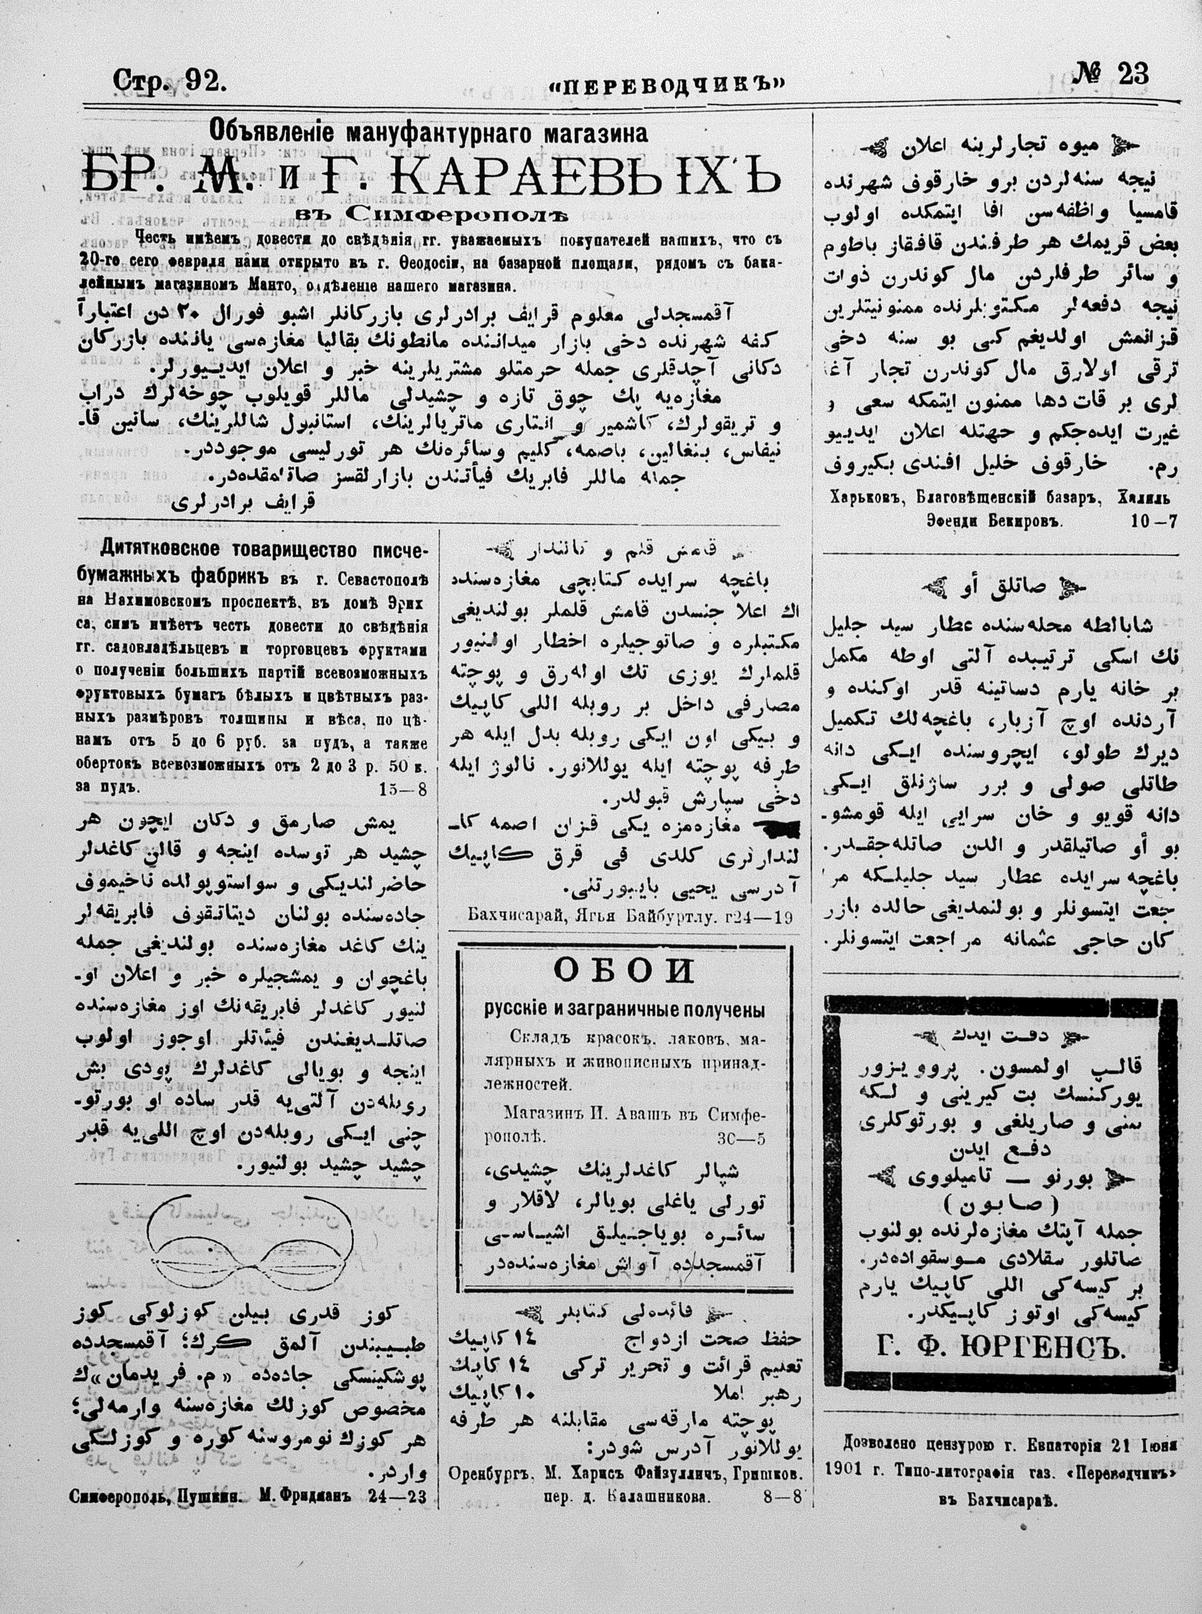 Стр. 92.
“ПЕРЕВОДЧИКЪ”
№ 23
Объявленіе мануфактурнаго магазина
БР. М. и Г. КАРАЕВЫХЪ
въ Симферополѣ
Честь имѣемъ довести до свѣдѣнія гг. уважаемыхъ покупателей нашихъ, что съ
20-го сего февраля нами открыто въ г. Ѳеодосіи, на базарной площади, рядомъ съ бака-
лейнымъ магазиномъ Манто, отдѣленіе нашего магазина.
آقمسجدلی معلوم قرایف برادرلری بازرکانلر اشبو فورال ۲۰ دن اعتباراً
کفه شهرنده دخی بازار میداننده مانطونك بقالیا مغازه‌سی یاننده بازرکان
دکانی آچدقلری جمله حرمتلو مشتریلرینه خبر و اعلان ایدییورلر.
مغازه‌یه پك چوق تازه و چشیدلی ماللر قویلوب چوخه‌لرك دراب
و تریقولرك، کاشمیر و انتاری ماتریالرینك، استانبول شاللرینك، ساتین قا-
نیفاس، بنغالین، باصمه، کلیم وسائره‌نك هر تورلیسی موجوددر.
جمله ماللر فابریك فیأتندن بازارلقسز صاتلمقده‌در.
قرایف برادرلری
Дитятковское товарищество писче-
бумажныхъ фабрикъ въ г. Севастополѣ
на Нахимовскомъ проспектѣ, въ домѣ Эрих
са, симъ имѣетъ честь довести до свѣдѣнія
гг. садовладѣльцевъ и торговцевъ фруктами
о полученіи большихъ партій всевозможныхъ
фруктовыхъ бумагъ бѣлыхъ и цвѣтныхъ раз-
ныхъ размѣровъ толщины и вѣса, по цѣ-
намъ отъ 5 до 6 руб. за пудъ, а также
обертокъ всевозможныхъ отъ 2 до 3 р. 50 к.
за пудъ. 15—8
یمش صارمق و دکان ایچون هر
چشید هر توسده اینجه و قالن کاغدلر
حاضرلندیکی و سواستوپولده ناخیموف
جاده‌سنده بولنان دیتاتقوف فابریقه‌لر
ینك کاغد مغازه‌سنده بولندیغی جمله
باغچوان و یمشجیلره خبر و اعلان او-
لنیور کاغدلر فابریقه‌نك اوز مغازه‌سنده
صاتلدیغندن فیئاتلر اوجوز اولوب
اینجه و بویالی کاغدلرك پودی بش
روبله‌دن آلتی‌یه قدر ساده او بورتو-
چنی ایکی روبله‌دن اوچ اللی‌یه قدر
چشید چشید بولنیور.
کوز قدری بیلن کوزلوکی کوز
طبیبندن آلمق کرك؛ آقمسجدده
پوشکینسکی جاده‌ده «م. فریدمان»ك
مخصوص کوزلك مغازه‌سنه وارمه‌لی؛
هر کوزك نومروسنه کوره و کوزلکی
واردر.
Симферополь, Пушкин. М. Фридманъ 24—23
قامش قلم و قالندار
باغچه سرایده کتابچی مغازه‌سنده
اك اعلا جنسدن قامش قلملر بولندیغی
مکتبلره و صاتوجیلره اخطار اولنیور
قلملرك یوزی تك اوله‌رق و پوچته
مصارفی داخل بر روبله اللی کاپیك
و بیکی اون ایکی روبله بدل ایله هر
طرفه پوچته ایله یوللانور. نالوژ ایله
دخی سپارش قبولدر.
مغازه‌مزه یکی قزان اصمه کا-
لندارلری کلدی فی قرق کاپیك
آدرسی یحیی بایبورتلی.
Бахчисарай, Ягъя Байбуртлу. г24—19
ОБОИ
русскіе и заграничные получены
Складъ красокъ, лаковъ, ма-
лярныхъ и живописныхъ принад-
лежностей.
Магазинъ И. Авашъ въ Симфе-
рополѣ. 30—5
شپالر کاغدلرینك چشیدی،
تورلی یاغلی بویالر، لاقلار و
سائره بویاجیلق اشیاسی
آقمسجدده آواش مغازه‌سنده‌در
فائده‌لی کتابلر
حفظ صحت ازدواج ۱٤ کاپیك
تعلیم قرائت و تحریر ترکی ۱٤ کاپك
رهبر املا ۱۰ کاپیك
پوچته مارقه‌سی مقابلنه هر طرفه
یوللانور آدرس شودر:
Оренбургъ, М. Харисъ Файзуллич, Гришков.
пер. д. Калашникова. 8—8
میوه تجارلرینه اعلان
نیجه سنه‌لردن برو خارقوف شهرنده
قامسیا واظفه‌سن افا ایتمکده اولوب
بعض قریمك هر طرفندن قافقاز باطوم
و سائر طرفلردن مال کوندرن ذوات
نیجه دفعه‌لر مکتوبلرنده ممنونیتلرین
قزانمش اولدیغم کبی بو سنه دخی
ترقی اولارق مال کوندرن تجار آغا
لری بر قات دها ممنون ایتمکه سعی و
غیرت ایده‌جکم و جهتله اعلان ایدییو
رم. خارقوف خلیل افندی بکیروف
Харьковъ, Благовѣщенскій базаръ, Халиль
Эфенди Бекировъ. 10—7
صاتلق أو
شابالطه محله‌سنده عطار سید جلیل
نك اسکی ترتیبده آلتی اوطه مکمل
بر خانه یارم دساتینه قدر اوکنده و
آردنده اوچ آزبار، باغچه‌لك تکمیل
دیرك طولو، ایچروسنده ایکی دانه
طاتلی صولی و برر ساژنلق ایکی
دانه قویو و خان سرایی ایله قومشو-
بو أو صاتیلقدر و الدن صاتله‌جقدر.
باغچه سرایده عطار سید جلیلکه مرا
جعت ایتسونلر و بولنمدیغی حالده بازر
کان حاجی عثمانه مراجعت ایتسونلر.
دقت ایدك
قالپ اولمسون. پروویزور
یورکنسك بت کیرینی و لکه
سنی و صاریلغی و بورتوکلری
دفع ایدن
بورنو — تامیلووی
(صابون)
جمله آپتك مغازه‌لرنده بولنوب
صاتلور سقلادی موسقواده‌در.
بر کیسه‌کی اللی کاپیك یارم
کیسه‌کی اوتوز کاپیکدر.
Г. Ф. ЮРГЕНСЪ.
Дозволено цензурою г. Евпаторія 21 Іюня
1901 г. Типо-литографія газ. «Переводчикъ»
въ Бахчисараѣ.